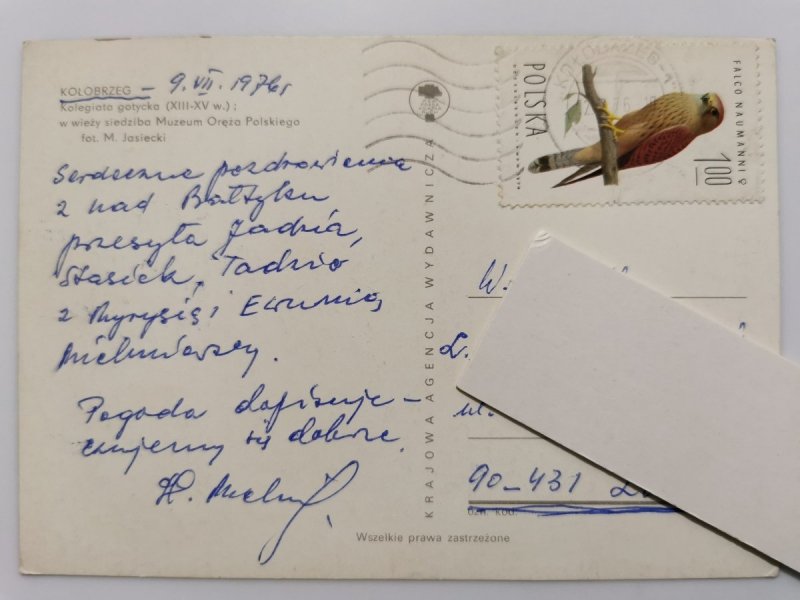 KOŁOBRZEG – 9. VII. 1976r
Kolegiata gotycka (XIII-XV w.) ;
w wieży siedziba Muzeum Oręża Polskiego
fot. M. Jasiecki
Serdeczne pozdrowienia
z nad Bałtyku
przesyła Jadzia,
Stasiek, Tadzio
z i Ewunią
Pogoda dopisuje –
czujemy się dobrze.
KRAJOWA AGENCJA WYDAWNICZA
POLSKA
FALCO NAUMANNI ♀
1.00
W.
ul.
90-431
Wszelkie prawa zastrzeżone